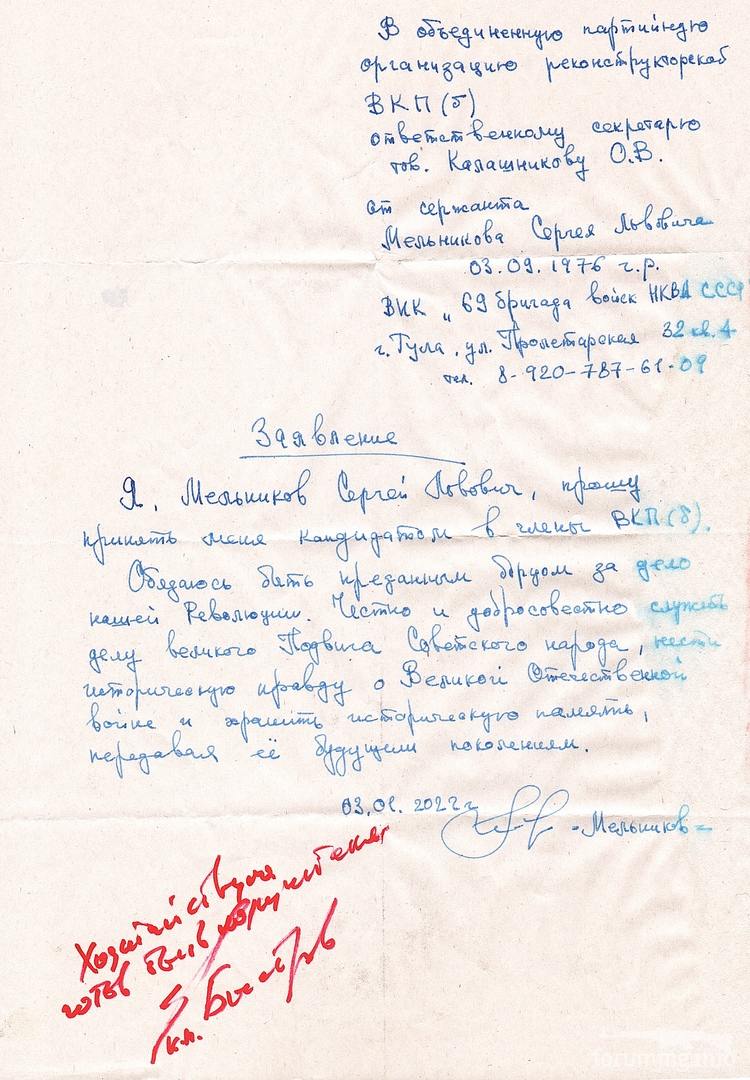 В объединенную партийную
организацию реконструкторской
ВКП(б)
ответственному секретарю
тов. Калашникову О.В.
от сержанта
Мельникова Сергея Львовича
03.09.1976 г.р.
ВИК „ 69 бригада войск НКВД СССР
г. Тула, ул. Пролетарская 32 кв. 4
тел. 8-920-787-61-09
Заявление
Я, Мельников Сергей Львович, прошу
принять меня кандидатом в члены ВКП(б).
Обязаюсь быть преданным борцом за дело
нашей Революции. Честно и добросовестно служить
делу великого Подвига Советского народа, нести
историческую правду о Великой Отечественной
войне и хранить историческую память,
передавая её будущим поколениям.
03.01.2022 г.
=Мельников=
Ходатайствую
готов быть поручителем
Быстров
forummg.info